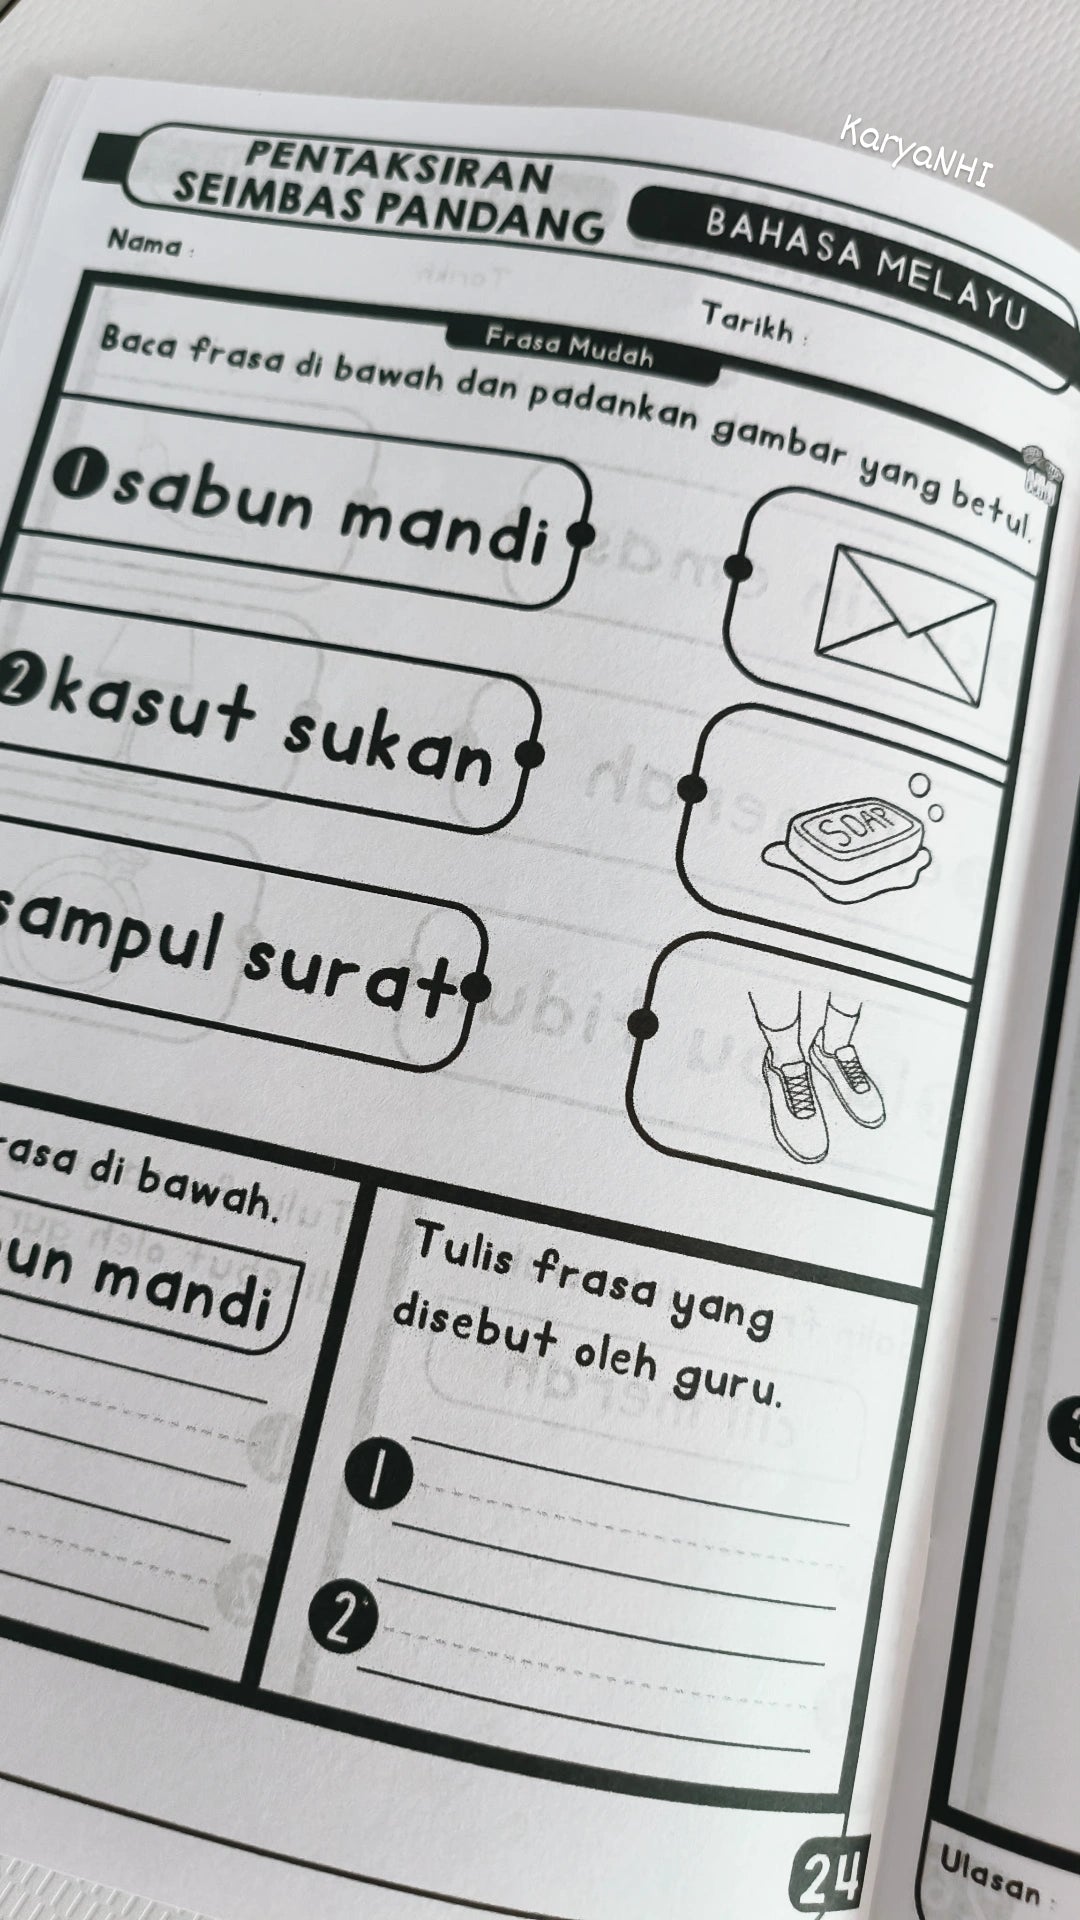 KaryaNHI
PENTAKSIRAN
SEIMBAS PANDANG
BAHASA MELAYU
Nama :
Tarikh :
Frasa Mudah
Baca frasa di bawah dan padankan gambar yang betul.
1 sabun mandi
2 kasut sukan
SOAP
sampul surat
di bawah.
mandi
Tulis frasa yang
disebut oleh guru.
1
2
3
24
Ulasan :